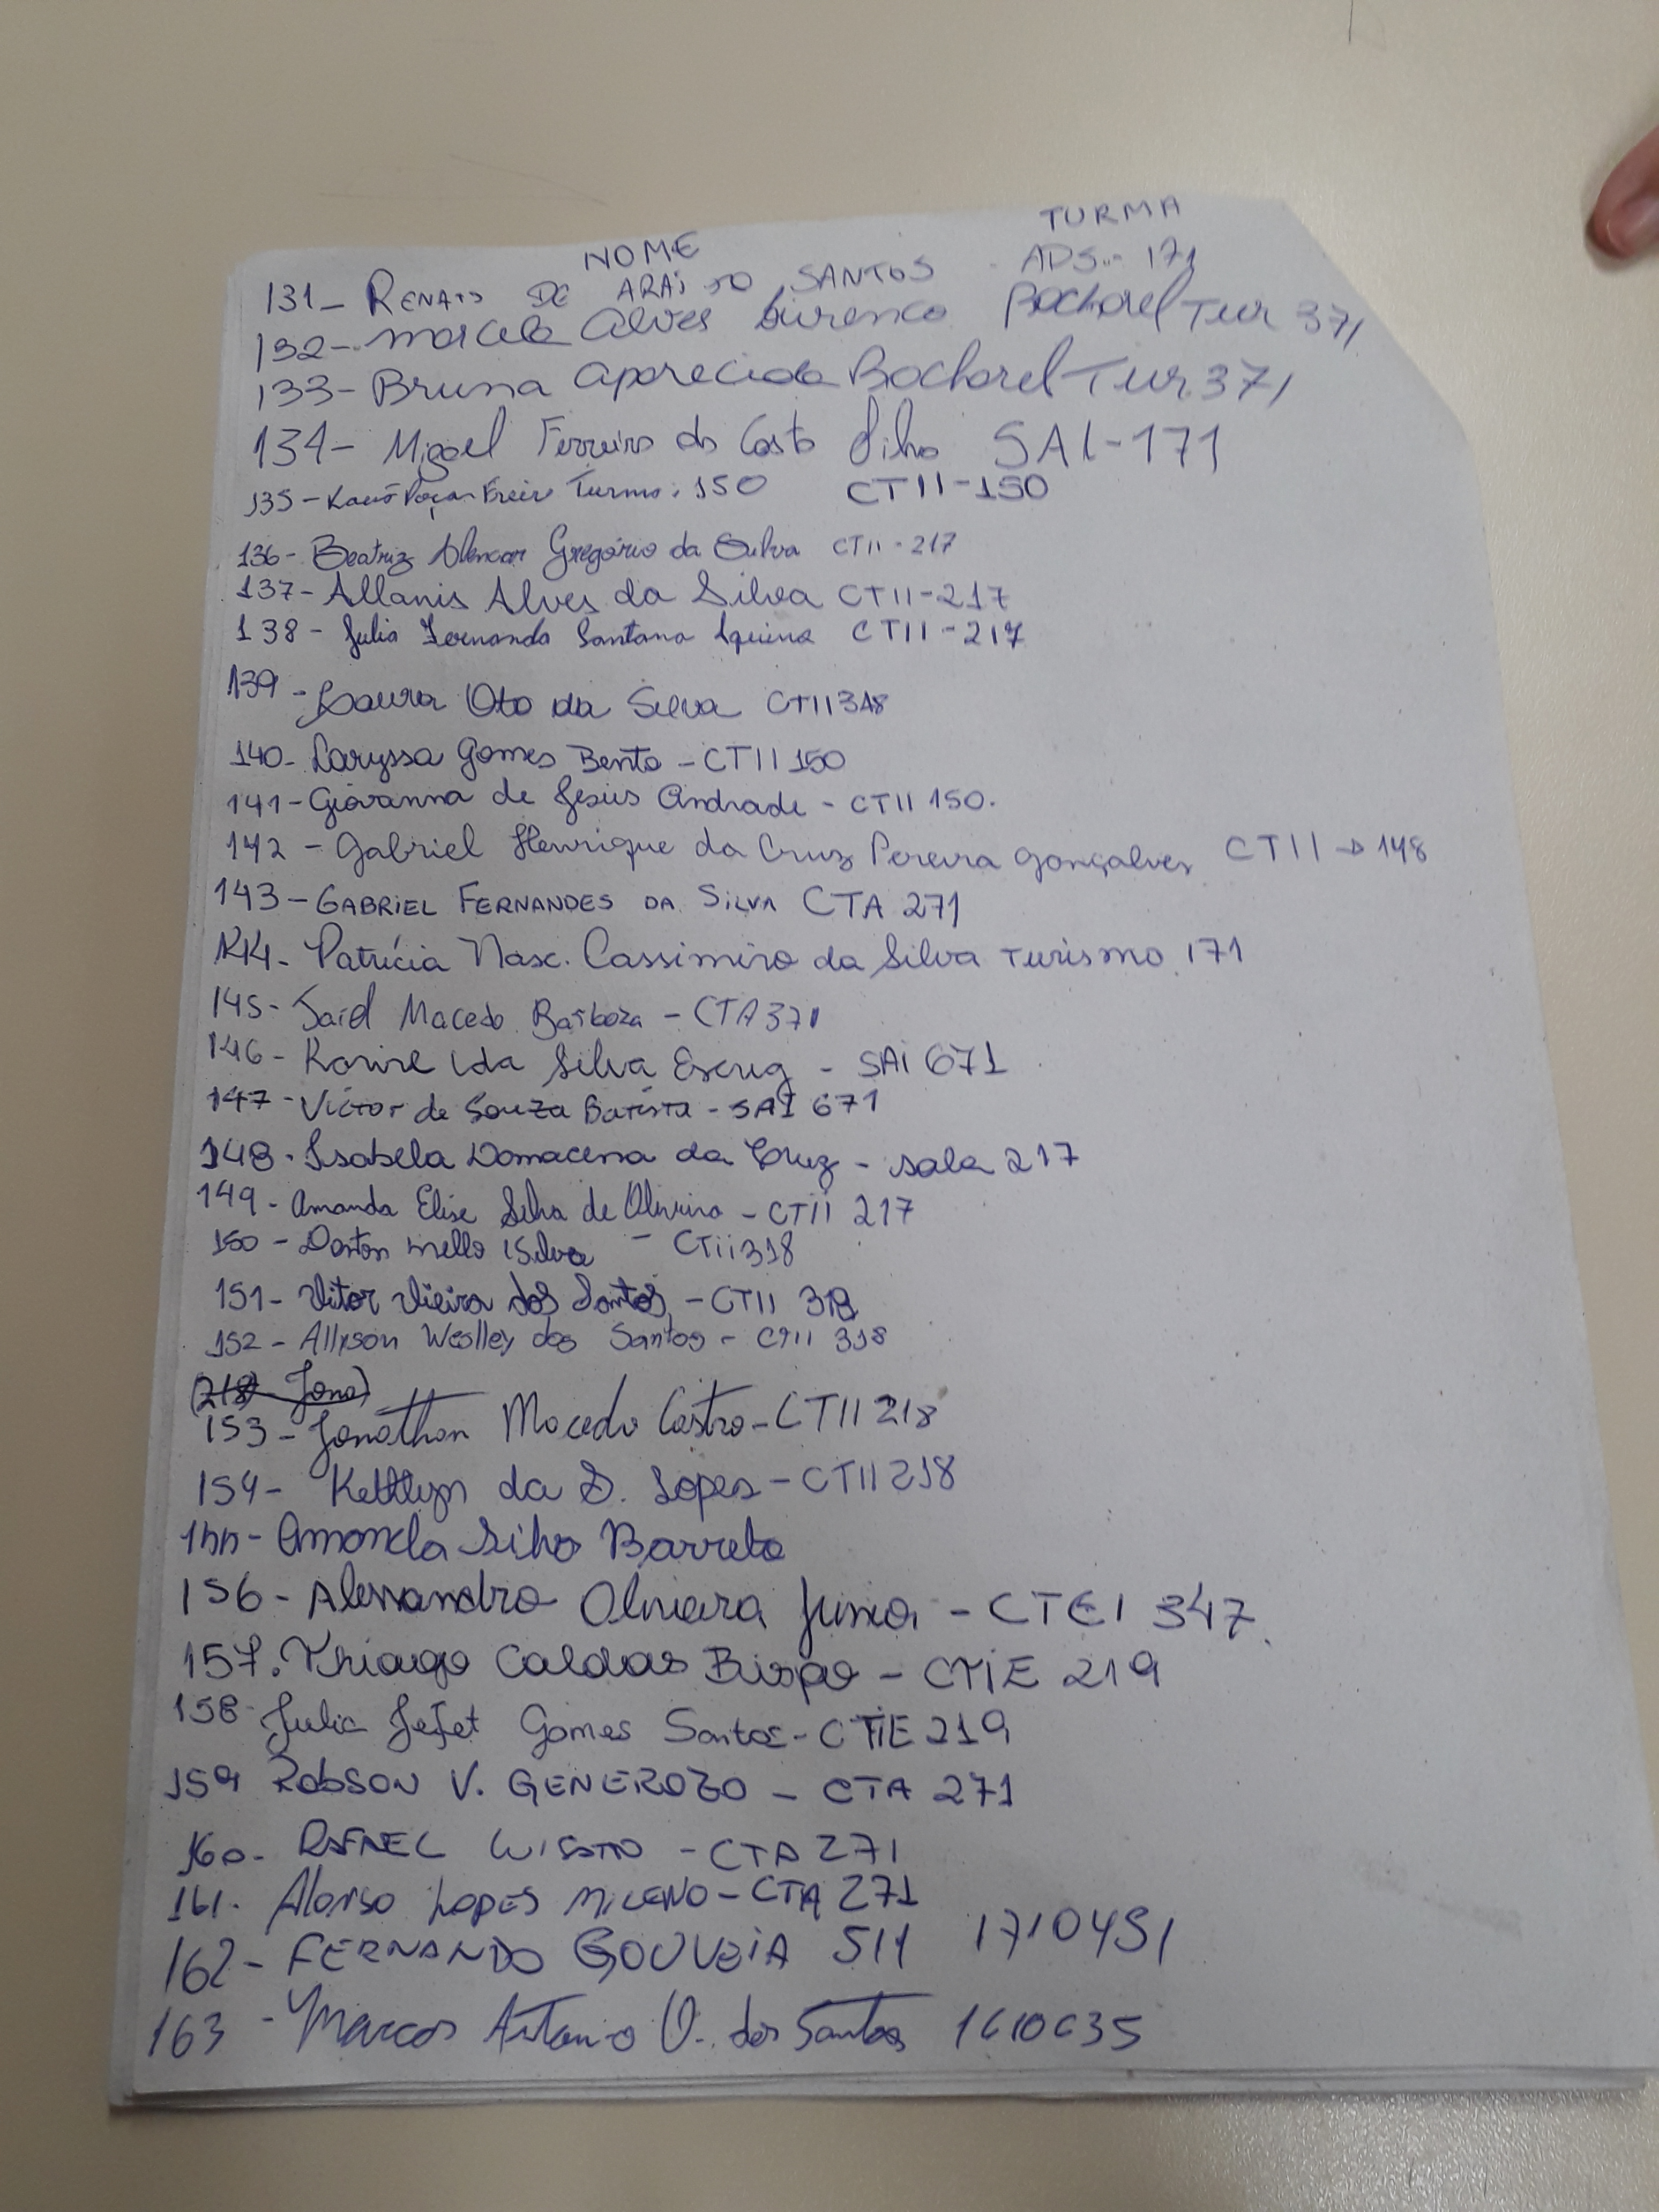 NOME TURMA
131- RENATO DE ARAUJO SANTOS ADS - 171
132- Marcela Alves Lourenco Bacharel Tur 371
133- Bruna Aparecida Bacharel Tur. 371
134- Migael Ferreira da Costa Filho SAI-171
135- Kauã Freire Turma: 150 CTII-150
136- Beatriz Alencar Gregório da Silva CTII-217
137- Allanis Alves da Silva CTII-217
138- Julia Fernanda Santana CTII-217
139- Laura Oto da Silva CTII 318
140- Laryssa Gomes Bento - CTII 150
141- Giovanna de Jesus Andrade - CTII 150.
142- Gabriel Henrique da Cruz Pereira Gonçalves CTII → 148
143- GABRIEL FERNANDES DA SILVA CTA 271
144- Patrícia Nasc. Cassimiro da Silva Turismo 171
145- Said Macedo Barboza - CTA 371
146- Karine da Silva - SAI 671
147- Victor de Souza Batista - SAI 671
148- Isabela Damacena da Cruz - sala 217
149- Amanda Elise Silva de Oliveira - CTII 217
150- Mello Silva - CTii 318
151- Vitor Vieira dos Santos - CTII 318
152- Allyson Weslley dos Santos - CTII 318
(218 Jona)
153- Jonathan Macedo Castro - CTII 218
154- Kettlyn da S. Lopes - CTII 218
155- Amanda Silva Barreto
156- Alessandro Oliveira - CTEI 347.
157. Thiago Caldas Bispo - CTIE 219
158- Julia Gomes Santos - CTIE 219
159 ROBSON V. GENEROZO - CTA 271
160- RAFAEL - CTA 271
161- Alonso LOPES - CTA 271
162- FERNANDO GOUVEIA 511 1710451
163- Marcos Antonio V. dos Santos 1610635